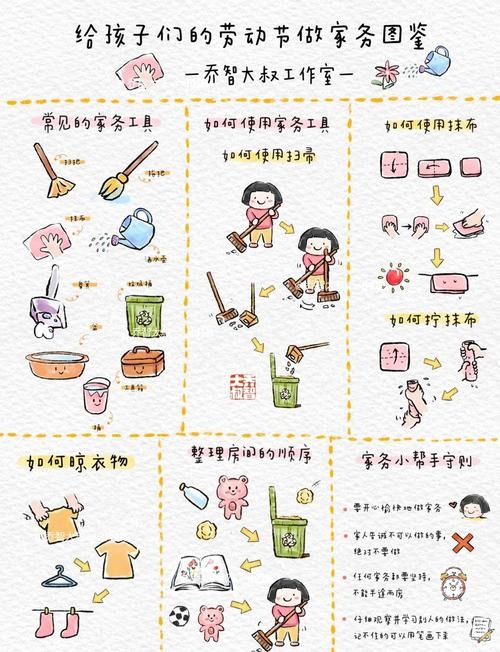 给孩子们的劳动节做家务图鉴
—乔智大叔工作室—
常见的家务工具
扫把
拖把
抹布
洒水壶
垃圾桶
盆
工具箱
桶
如何使用家务工具
如何使用扫帚
如何使用抹布
如何拧抹布
如何晾衣物
整理房间的顺序
家务小帮手守则
• 要开心愉快地做家务
• 家人告诫不可以做的事,
绝对不要做
• 任何家务都要坚持,
不能半途而废
• 仔细观察并学习别人的做法,
记不住的可以用笔画下来